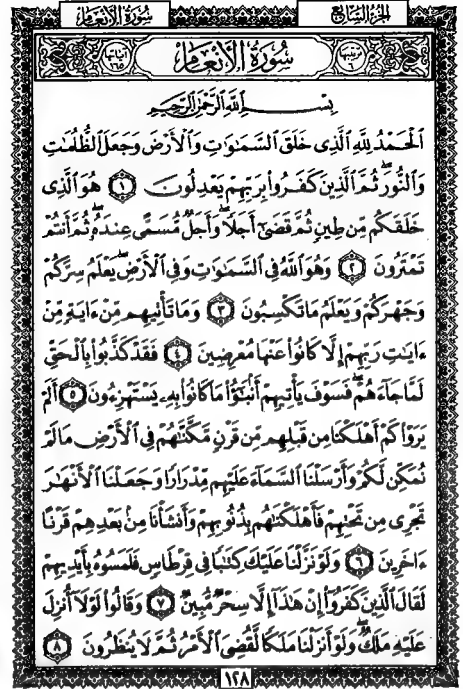 سُورَةُ الأَنعَامِ الجُزءُ السَّابِعُ
آياتها ١٦٥ سُورَةُ الأَنعَامِ ترتيبها ٦
بِسْمِ اللَّهِ الرَّحْمَٰنِ الرَّحِيمِ
الْحَمْدُ لِلَّهِ الَّذِي خَلَقَ السَّمَٰوَٰتِ وَالْأَرْضَ وَجَعَلَ الظُّلُمَٰتِ
وَالنُّورَ ۖ ثُمَّ الَّذِينَ كَفَرُوا بِرَبِّهِمْ يَعْدِلُونَ ١ هُوَ الَّذِي
خَلَقَكُم مِّن طِينٍ ثُمَّ قَضَىٰٓ أَجَلًا ۖ وَأَجَلٌ مُّسَمًّى عِندَهُۥ ۖ ثُمَّ أَنتُمْ
تَمْتَرُونَ ٢ وَهُوَ اللَّهُ فِي السَّمَٰوَٰتِ وَفِي الْأَرْضِ ۖ يَعْلَمُ سِرَّكُمْ
وَجَهْرَكُمْ وَيَعْلَمُ مَا تَكْسِبُونَ ٣ وَمَا تَأْتِيهِم مِّنْ ءَايَةٍ مِّنْ
ءَايَٰتِ رَبِّهِمْ إِلَّا كَانُوا عَنْهَا مُعْرِضِينَ ٤ فَقَدْ كَذَّبُوا بِالْحَقِّ
لَمَّا جَآءَهُمْ ۖ فَسَوْفَ يَأْتِيهِمْ أَنۢبَٰٓؤُا مَا كَانُوا بِهِۦ يَسْتَهْزِءُونَ ٥ أَلَمْ
يَرَوْا كَمْ أَهْلَكْنَا مِن قَبْلِهِم مِّن قَرْنٍ مَّكَّنَّٰهُمْ فِي الْأَرْضِ مَا لَمْ
نُمَكِّن لَّكُمْ وَأَرْسَلْنَا السَّمَآءَ عَلَيْهِم مِّدْرَارًا وَجَعَلْنَا الْأَنْهَٰرَ
تَجْرِي مِن تَحْتِهِمْ فَأَهْلَكْنَٰهُم بِذُنُوبِهِمْ وَأَنشَأْنَا مِنۢ بَعْدِهِمْ قَرْنًا
ءَاخَرِينَ ٦ وَلَوْ نَزَّلْنَا عَلَيْكَ كِتَٰبًا فِي قِرْطَاسٍ فَلَمَسُوهُ بِأَيْدِيهِمْ
لَقَالَ الَّذِينَ كَفَرُوٓا إِنْ هَٰذَآ إِلَّا سِحْرٌ مُّبِينٌ ٧ وَقَالُوا لَوْلَآ أُنزِلَ
عَلَيْهِ مَلَكٌ ۖ وَلَوْ أَنزَلْنَا مَلَكًا لَّقُضِيَ الْأَمْرُ ثُمَّ لَا يُنظَرُونَ ٨
١٢٨